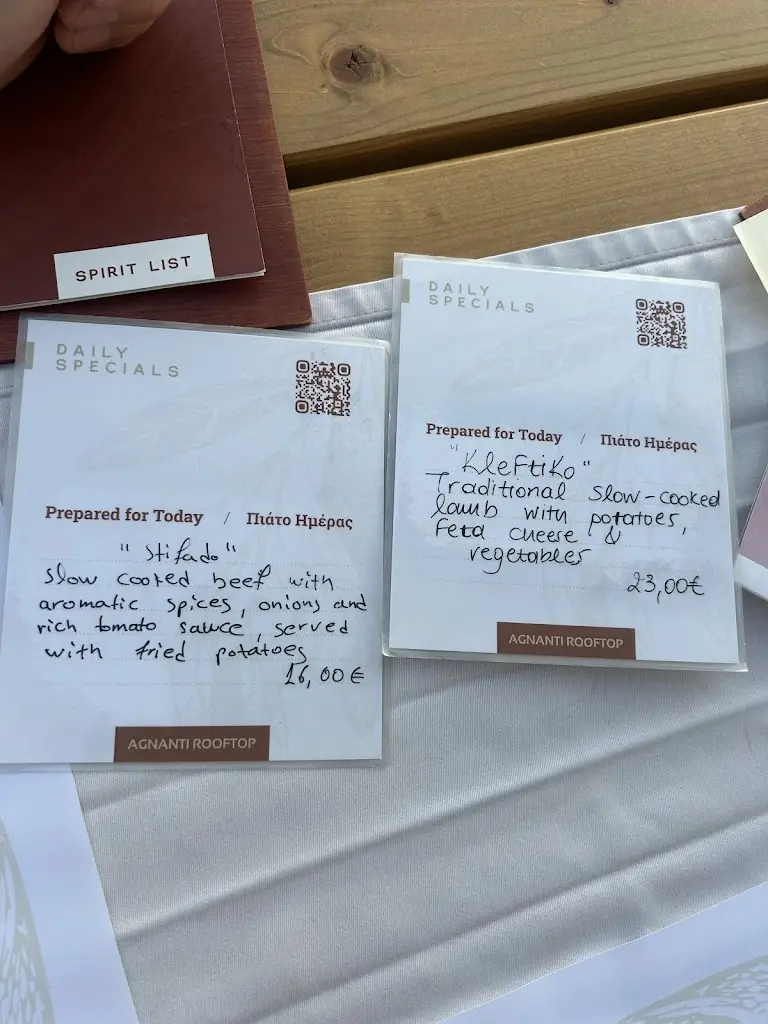 SPIRIT LIST
DAILY
SPECIALS
Prepared for Today / Πιάτο Ημέρας
"Stifado"
Slow cooked beef with
aromatic spices, onions and
rich tomato sauce, served
with fried potatoes
16,00€
AGNANTI ROOFTOP
DAILY
SPECIALS
Prepared for Today / Πιάτο Ημέρας
"Kleftiko"
Traditional slow-cooked
lamb with potatoes,
Feta cheese &
vegetables
23,00€
AGNANTI ROOFTOP